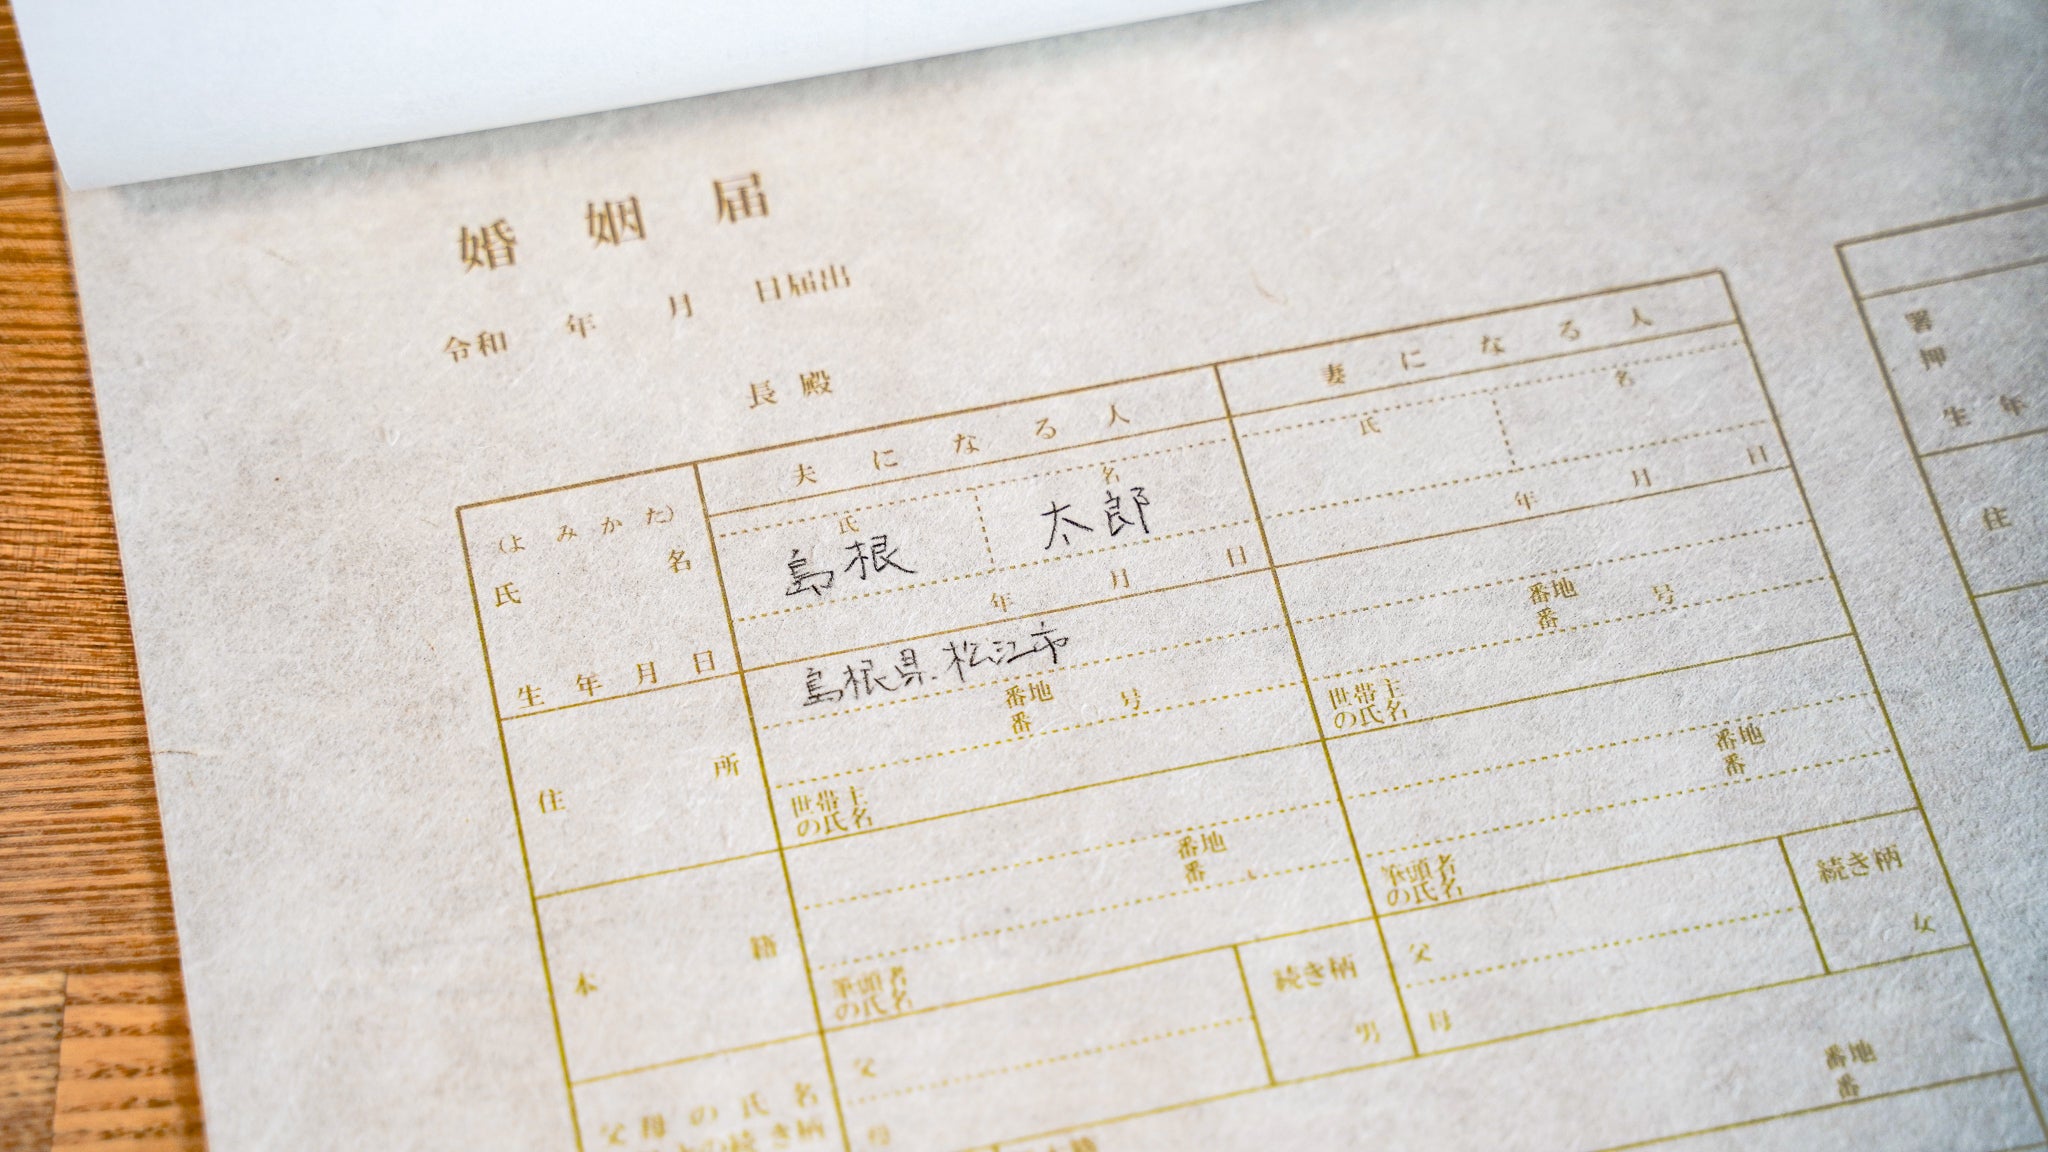 婚姻届
令和 年 月 日届出
長殿
夫になる人 妻になる人
(よみかた) 氏 名 氏 名
氏名 島根 太郎
生年月日 年 月 日 年 月 日
住所 島根県松江市
番地 番 号 番地 番 号
世帯主の氏名 世帯主の氏名
本籍 番地 番 番地 番
筆頭者の氏名 筆頭者の氏名
父母の氏名 父 続き柄 父 続き柄
の続き柄 母 男 母 女
番地
番
署押
生年
住